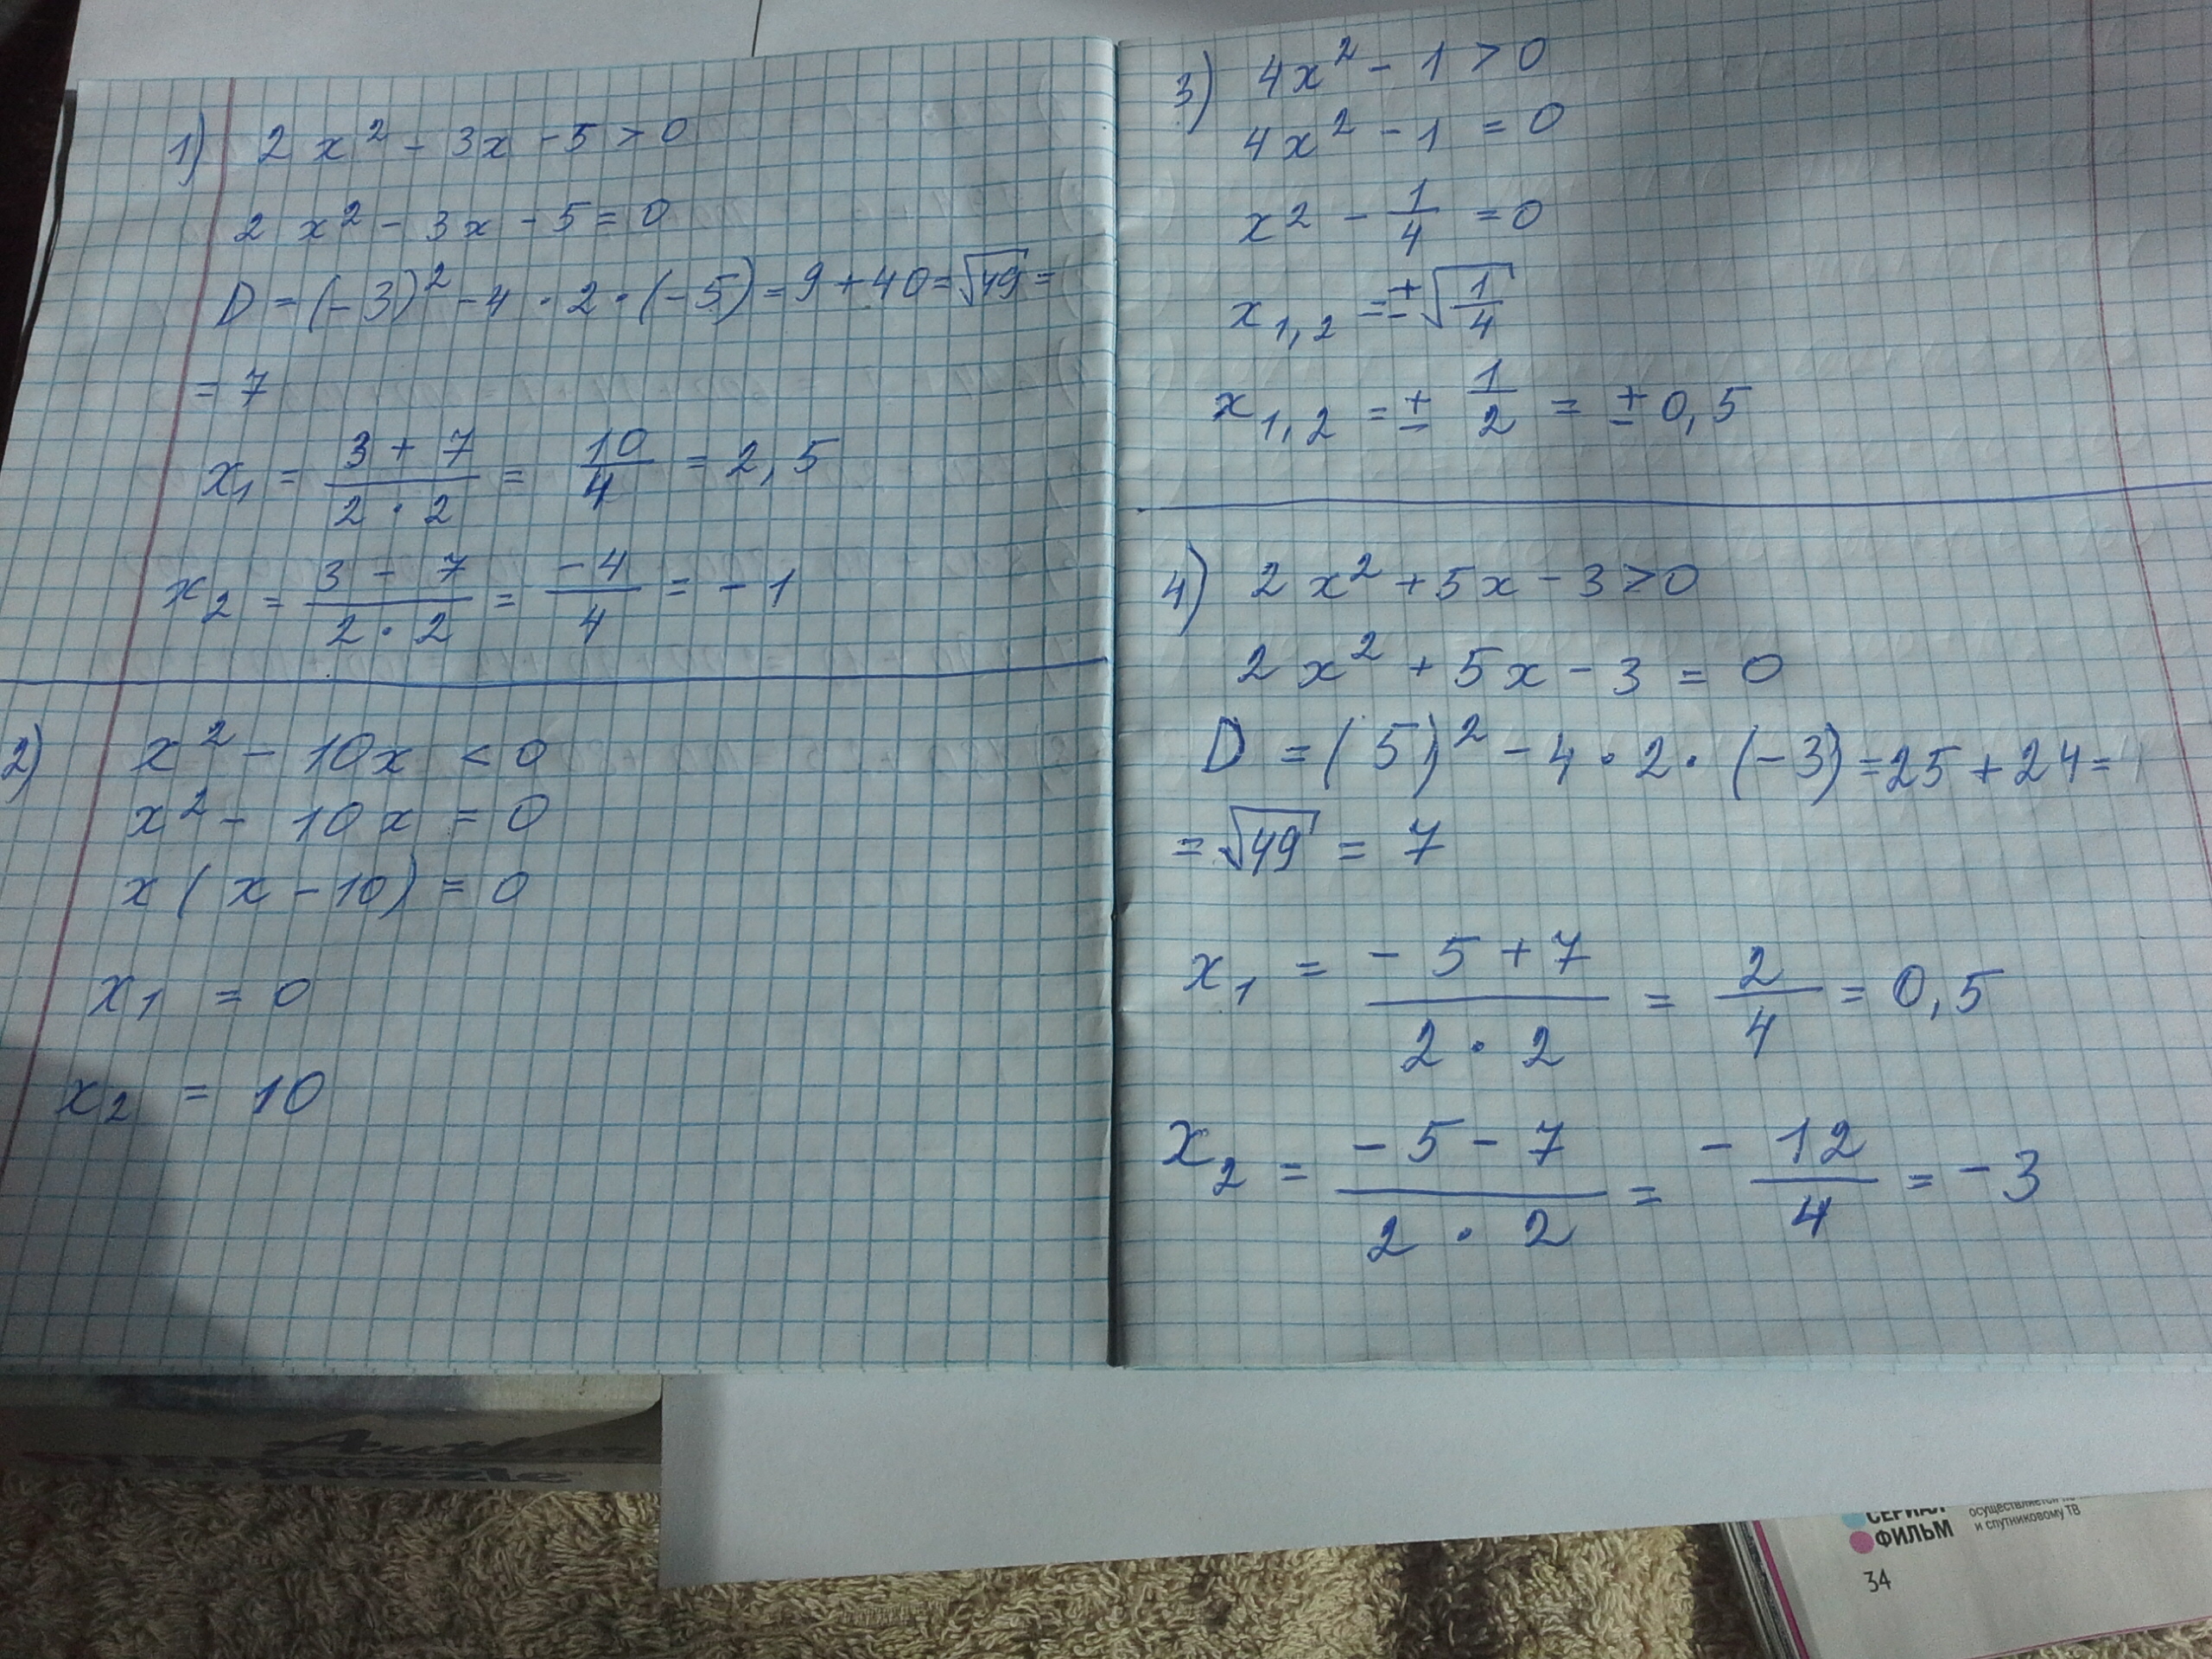 1) 2x² - 3x - 5 > 0
2x² - 3x - 5 = 0
D = (-3)² - 4 · 2 · (-5) = 9 + 40 = √49 =
= 7
x₁ = (3 + 7)/(2 · 2) = 10/4 = 2,5
x₂ = (3 - 7)/(2 · 2) = -4/4 = -1
2) x² - 10x < 0
x² - 10x = 0
x(x - 10) = 0
x₁ = 0
x₂ = 10
3) 4x² - 1 > 0
4x² - 1 = 0
x² - 1/4 = 0
x₁,₂ = ±√(1/4)
x₁,₂ = ± 1/2 = ± 0,5
4) 2x² + 5x - 3 > 0
2x² + 5x - 3 = 0
D = (5)² - 4 · 2 · (-3) = 25 + 24 =
= √49 = 7
x₁ = (-5 + 7)/(2 · 2) = 2/4 = 0,5
x₂ = (-5 - 7)/(2 · 2) = -12/4 = -3
Author
СЕРИАЛ
ФИЛЬМ
осуществляется
и спутниковому ТВ
34